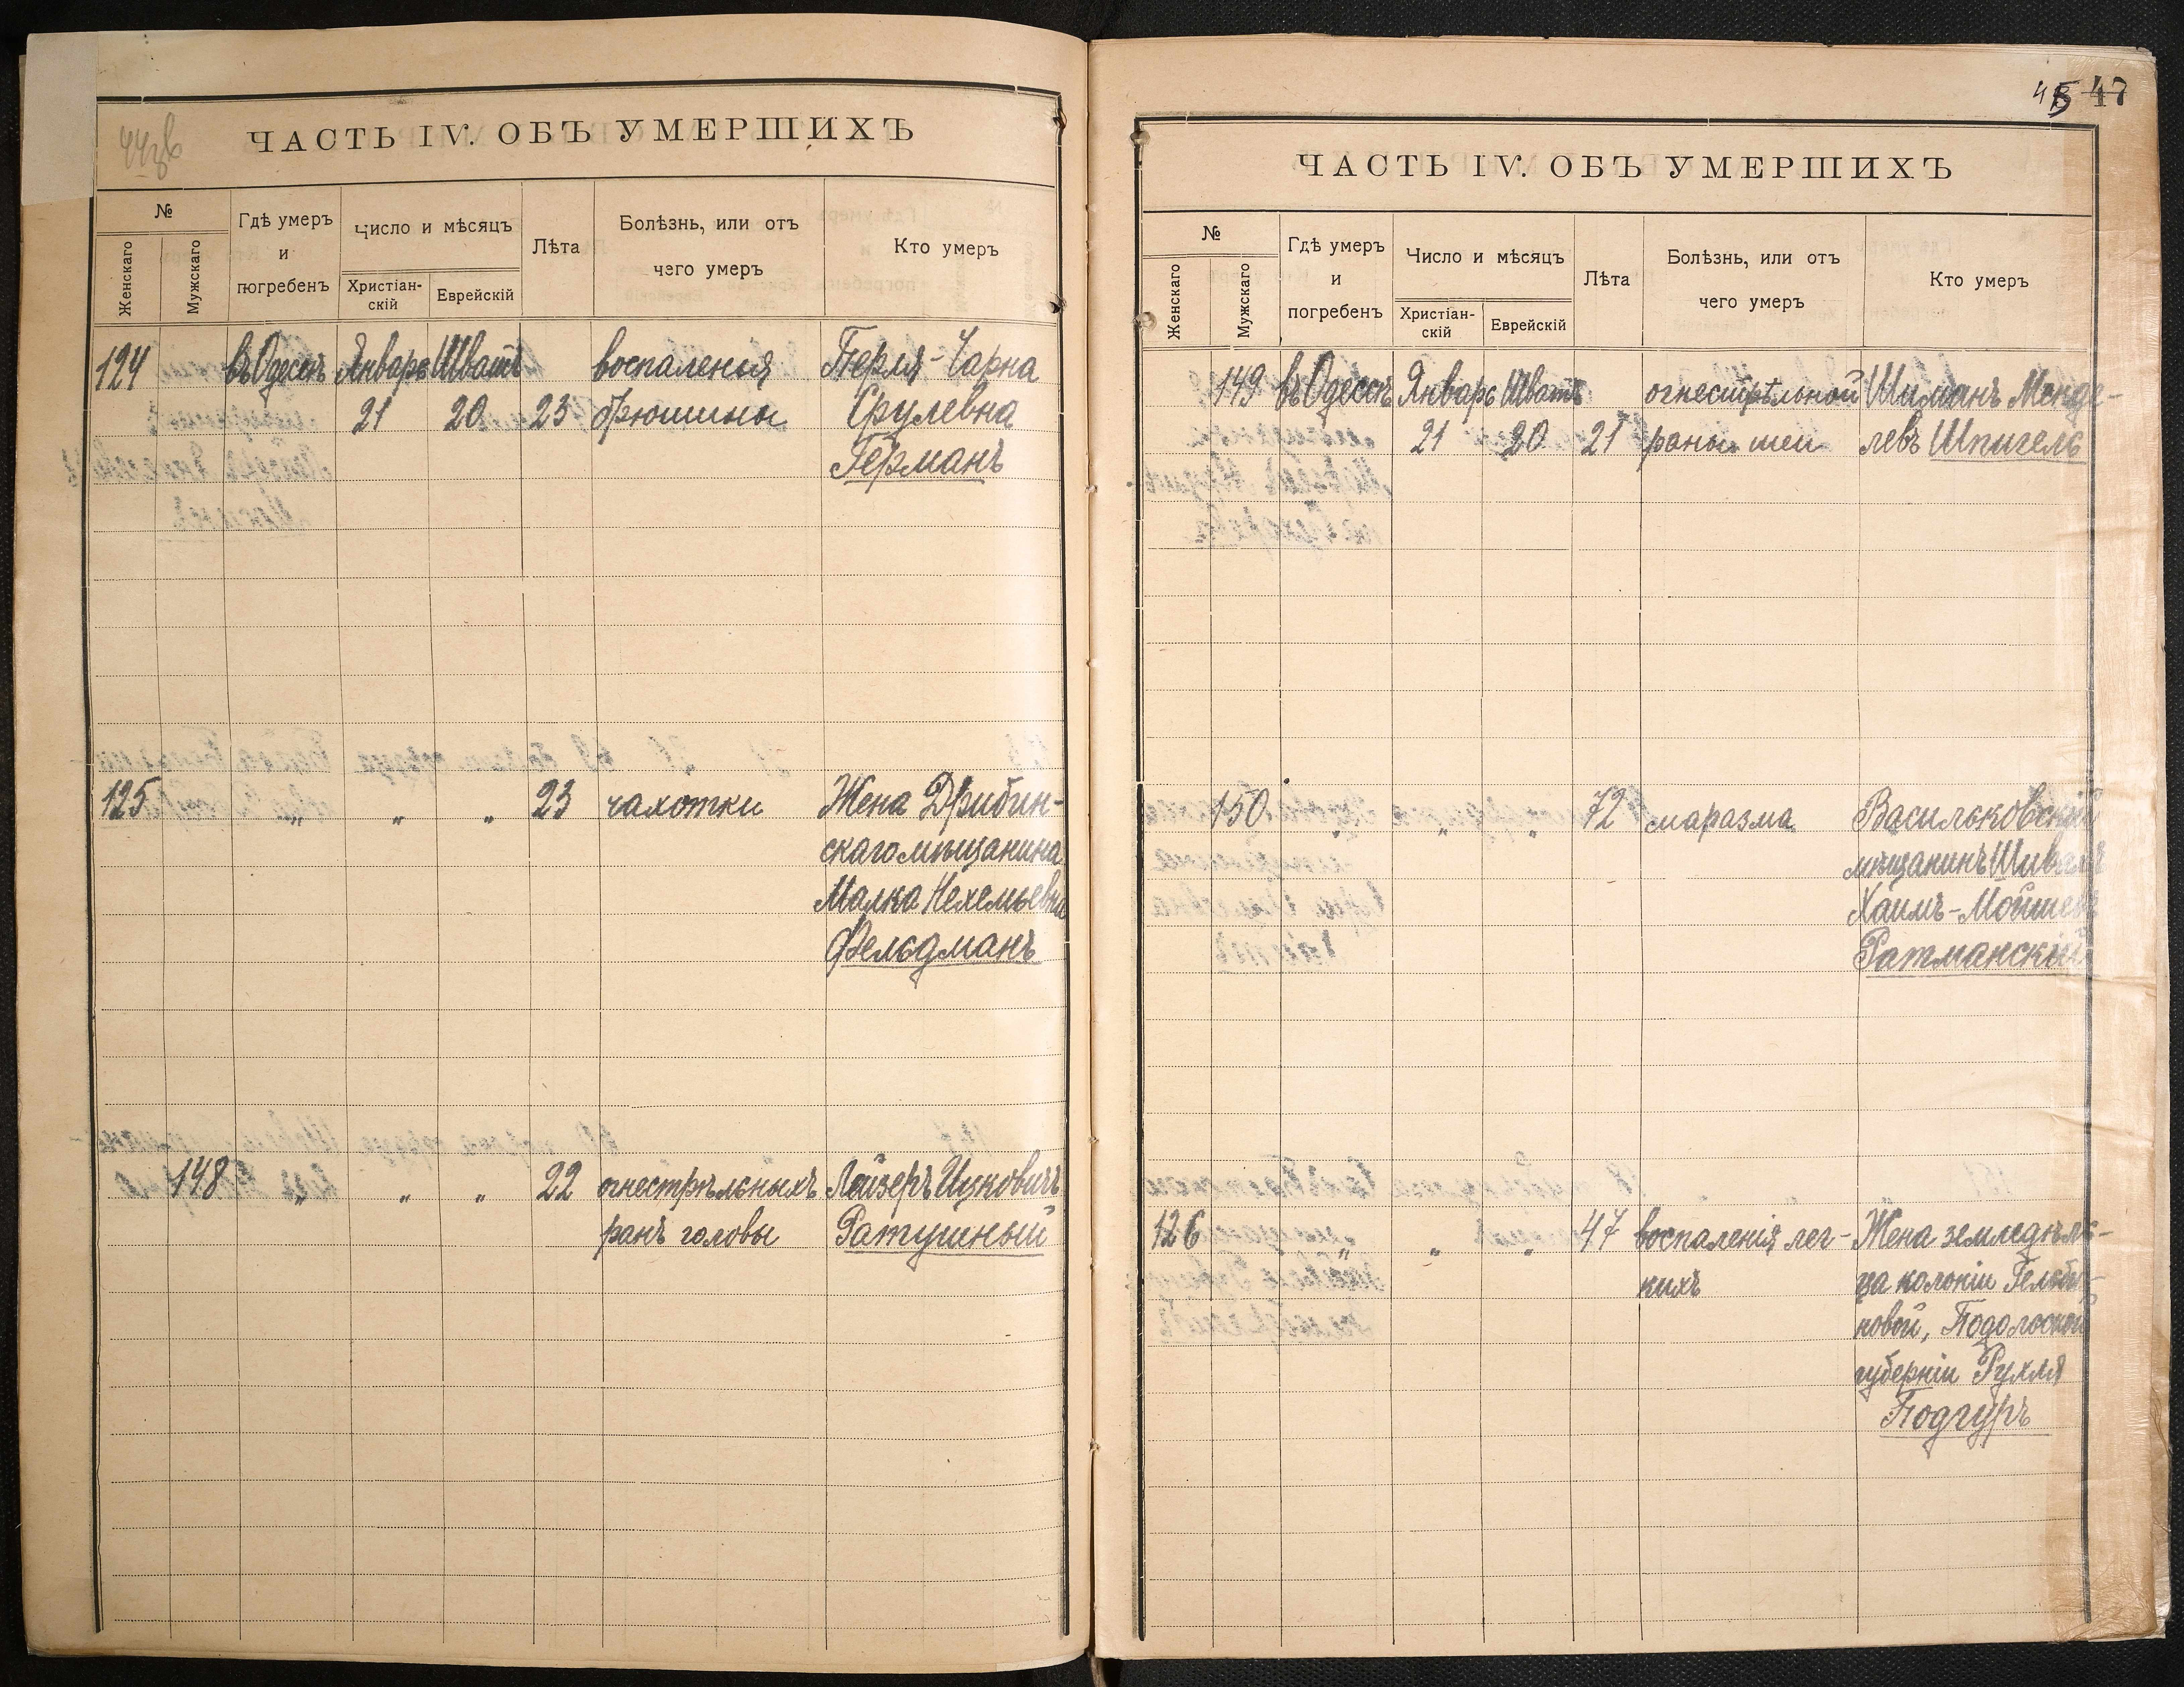 44зв
ЧАСТЬ IV. ОБЪ УМЕРШИХЪ
№
Женскаго
Мужскаго
Гдѣ умеръ
и
погребенъ
Число и мѣсяцъ
Христіан-
скій
Еврейскій
Лѣта
Болѣзнь, или отъ
чего умеръ
Кто умеръ
124 въ Одессѣ Январь Шватъ воспаленья Перля-Чарна
21 20 23 брюшины Срулевна
Германъ
125 „ „ „ 23 чахотки Жена Дрибин-
скаго мѣщанина
Малка Нехемьевна
Фельдманъ
148 „ „ „ 22 огнестрѣльныхъ Лейзеръ Ицковичъ
ранъ головы Ратушный
45 47
ЧАСТЬ IV. ОБЪ УМЕРШИХЪ
№
Женскаго
Мужскаго
Гдѣ умеръ
и
погребенъ
Число и мѣсяцъ
Христіан-
скій
Еврейскій
Лѣта
Болѣзнь, или отъ
чего умеръ
Кто умеръ
149 въ Одессѣ Январь Шватъ огнестрѣльной Шиманъ Менде-
21 20 21 раны шеи левъ Шпигель
150 „ „ „ 72 маразма Васильковскій
мѣщанинъ
Хаимъ-Мойшевъ
Ратманскій
126 „ „ „ 47 воспаленія лег- Жена земледѣль-
кихъ ца колоніи
новой, Подольской
губерніи Рухля
Подгуръ